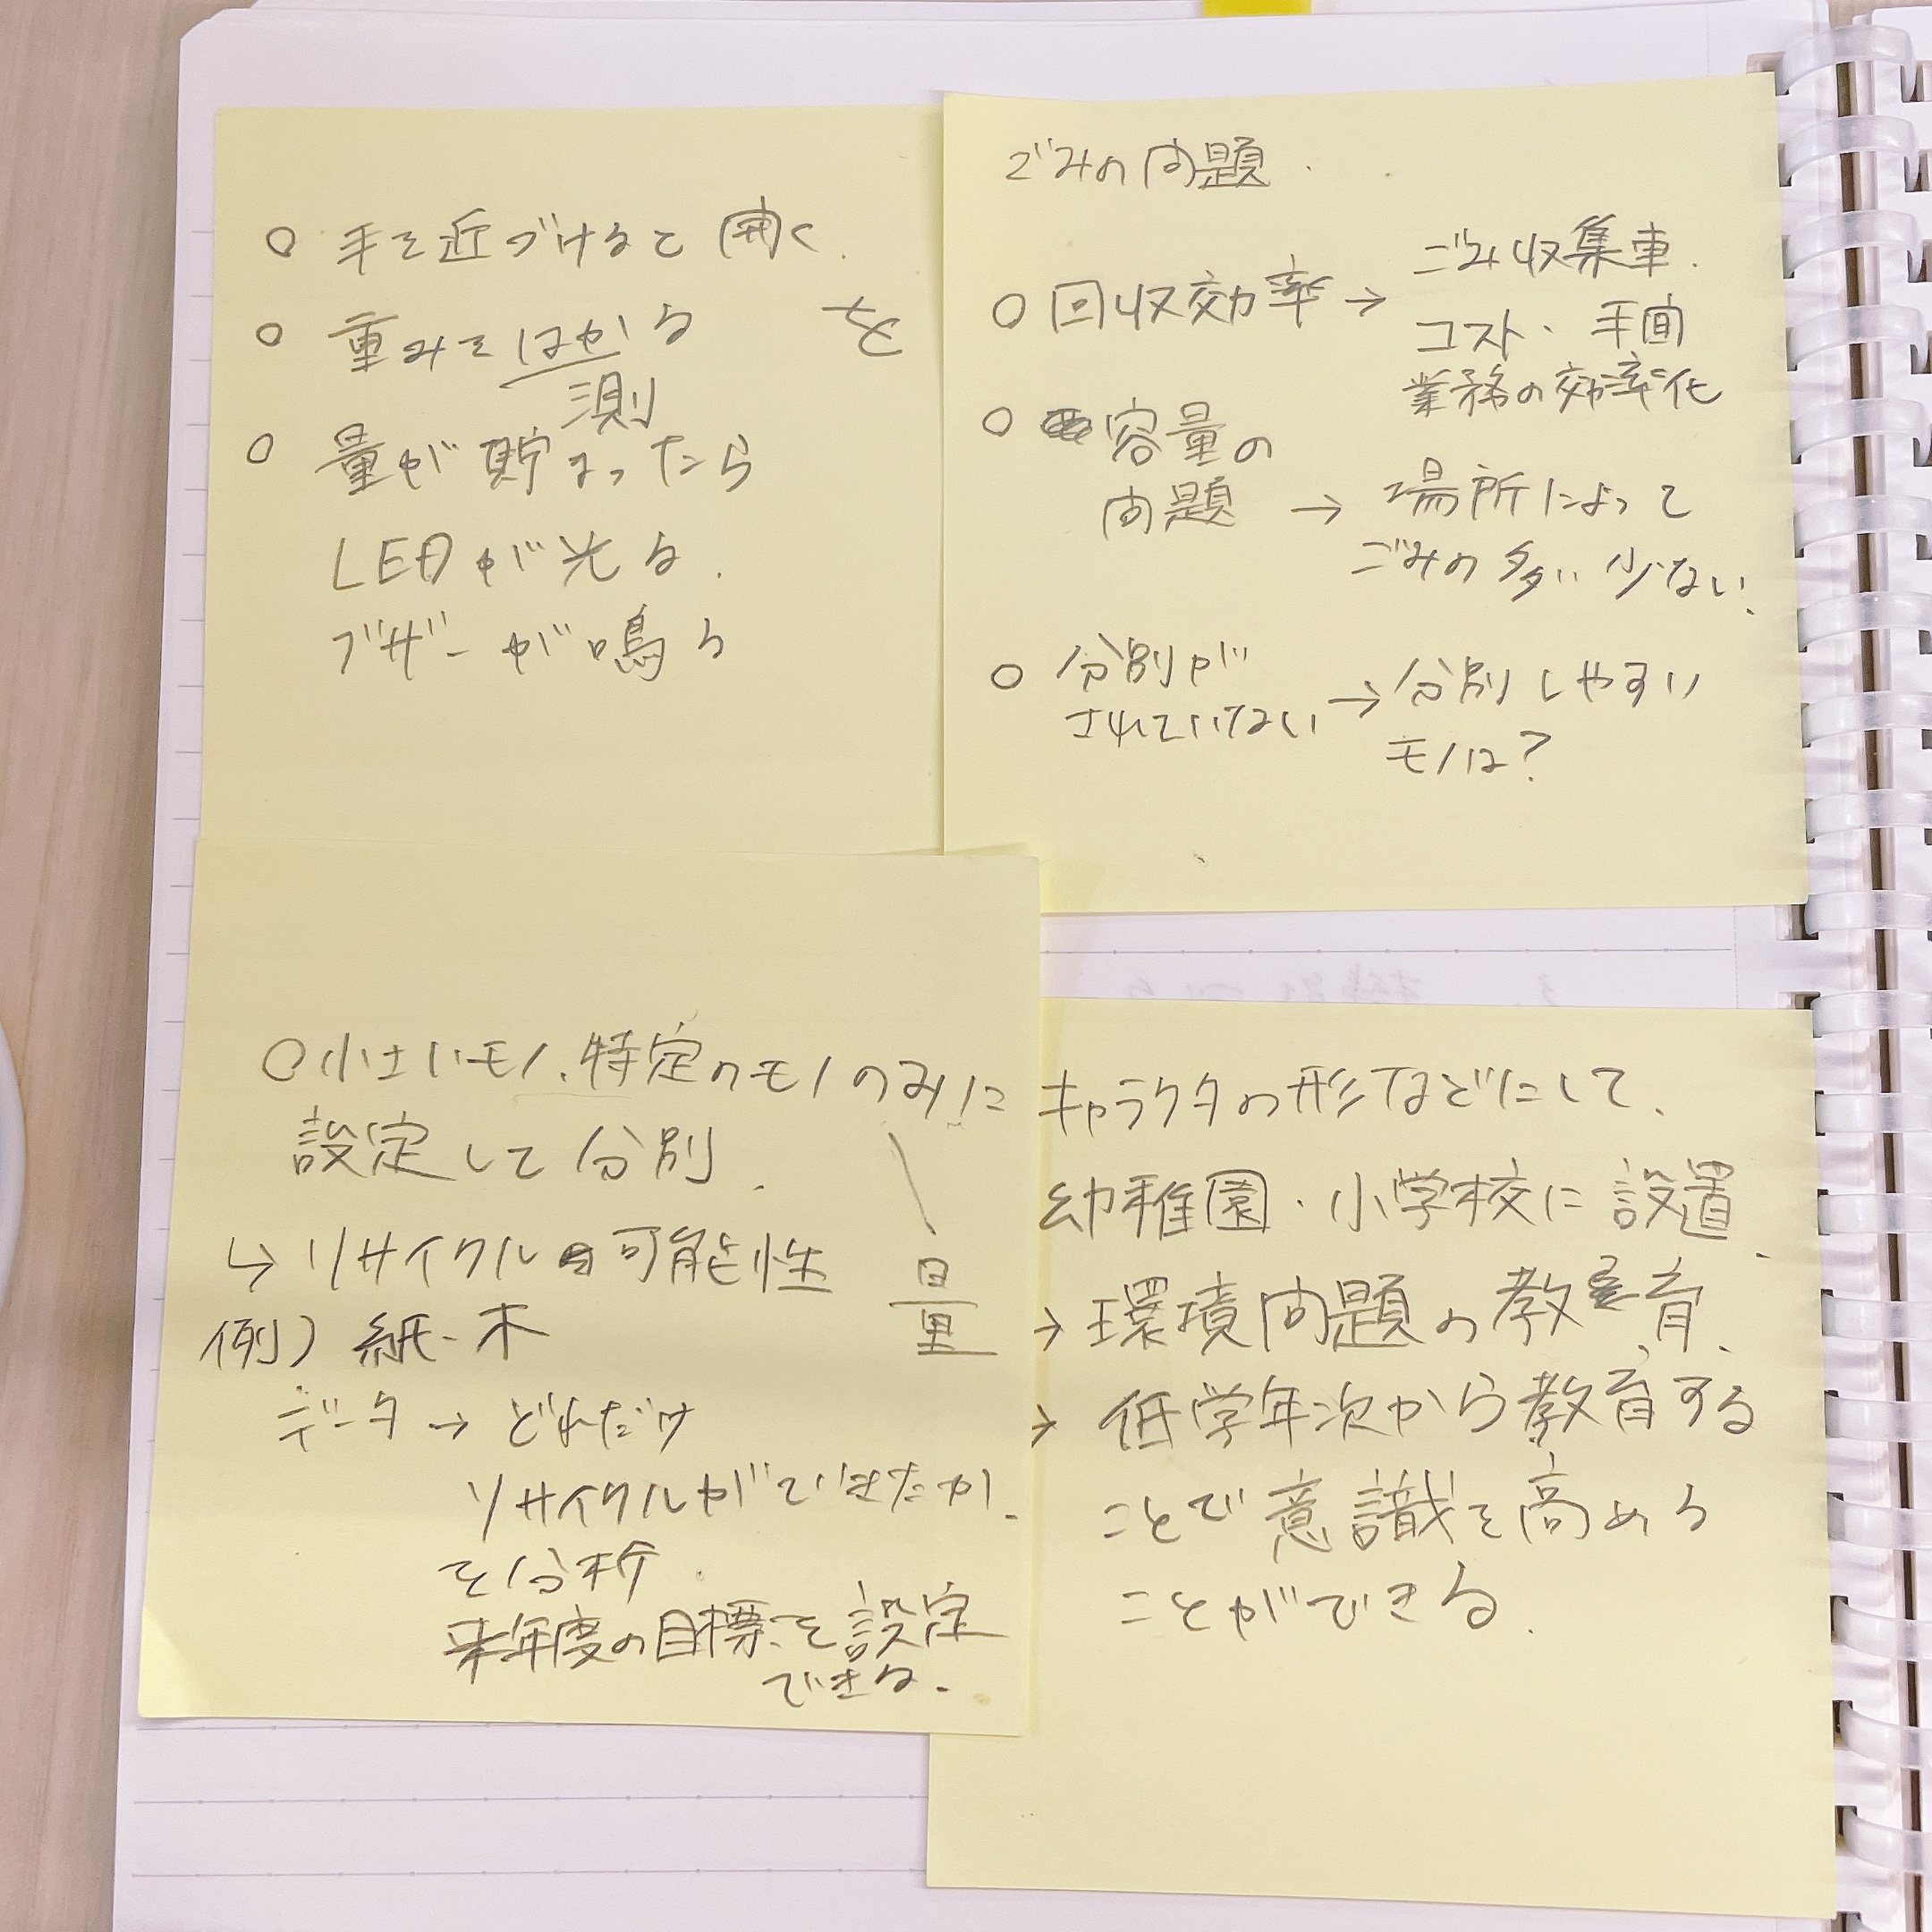 ○ 手を近づけると開く.
○ 重みをはかる
測
を
○ 量が貯まったら
LEDが光る.
ブザーが鳴る
ごみの問題.
○ 回収効率→
ごみ収集車.
コスト・手間
業務の効率化
○ 容量の
問題 →
場所によって
ごみの多い少ない.
○ 分別が
されていない →
分別しやすい
モノは?
○小さいモノ、特定のモノのみに
設定して分別.
量
↳ リサイクル 可能性
例) 紙・木
データ → どれだけ
リサイクルができたか.
を分析.
来年度の目標を設定
できる.
キャラクタの形などにして、
幼稚園・小学校に設置、
→ 環境問題の教育、
→ 低学年次から教育する
ことで意識を高める
ことができる.